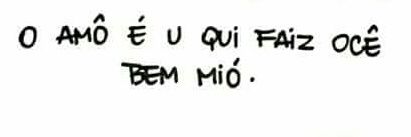 O AMÔ É U QUi FAiZ OCÊ
BEM MiÓ.